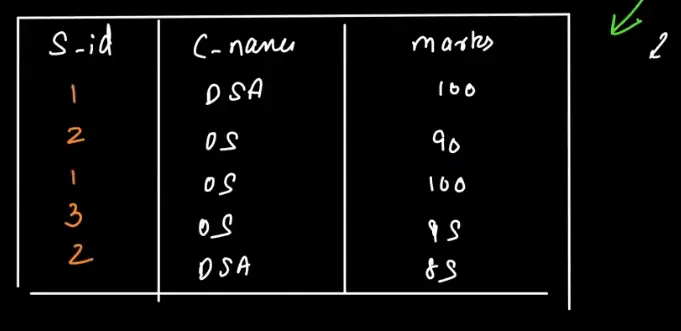 S-id C-name marks
1 DSA 100
2 OS 90
1 OS 100
3 OS 95
2 DSA 85